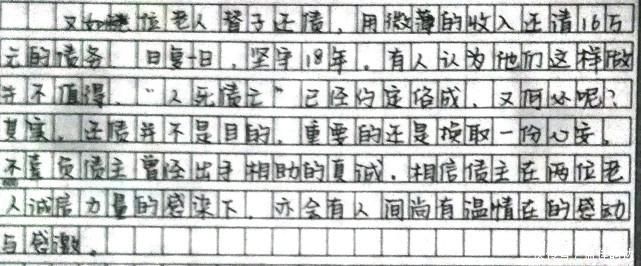 又如位老人替子还债，用微薄的收入还请16万
元的债务 日复一日，坚守18年。有人认为他们这样做
并不值得，“人死债亡”已经约定俗成，又何必呢？
其实，还债并不是目的，重要的还是换取一份心安，
不辜负债主曾经出手相助的真诚。相信债主在两位老
人诚信力量的感染下，亦会有人间尚有温情在的感动
与感激。